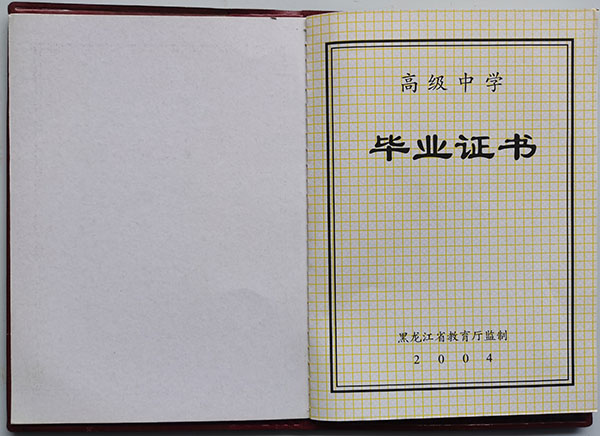 高级中学
毕业证书
黑龙江省教育厅监制
2004